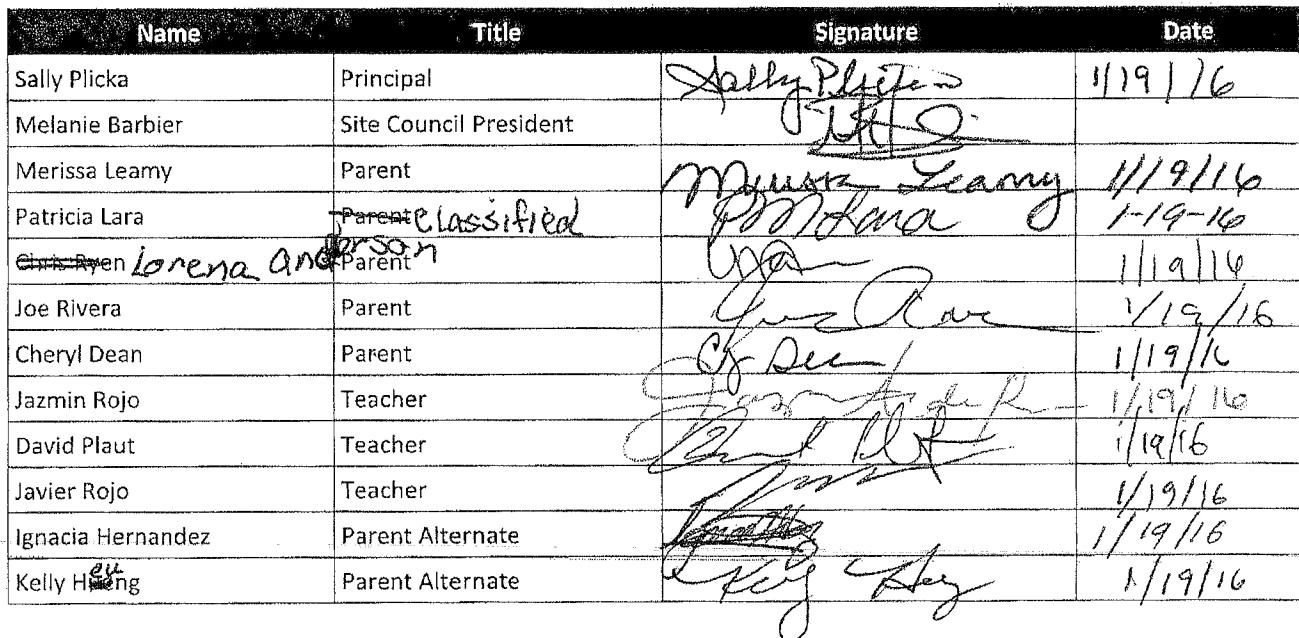 Name Title Signature Date
Sally Plicka Principal Sally Plicka 1/19/16
Melanie Barbier Site Council President
Merissa Leamy Parent Merissa Leamy 1/19/16
Patricia Lara Parent Classified PM Lara 1-19-16
Chris Ryen Lorena Anderson Parent 1/19/16
Joe Rivera Parent 1/19/16
Cheryl Dean Parent 1/19/16
Jazmin Rojo Teacher 1/19/16
David Plaut Teacher 1/19/16
Javier Rojo Teacher 1/19/16
Ignacia Hernandez Parent Alternate 1/19/16
Kelly Heung Parent Alternate 1/19/16